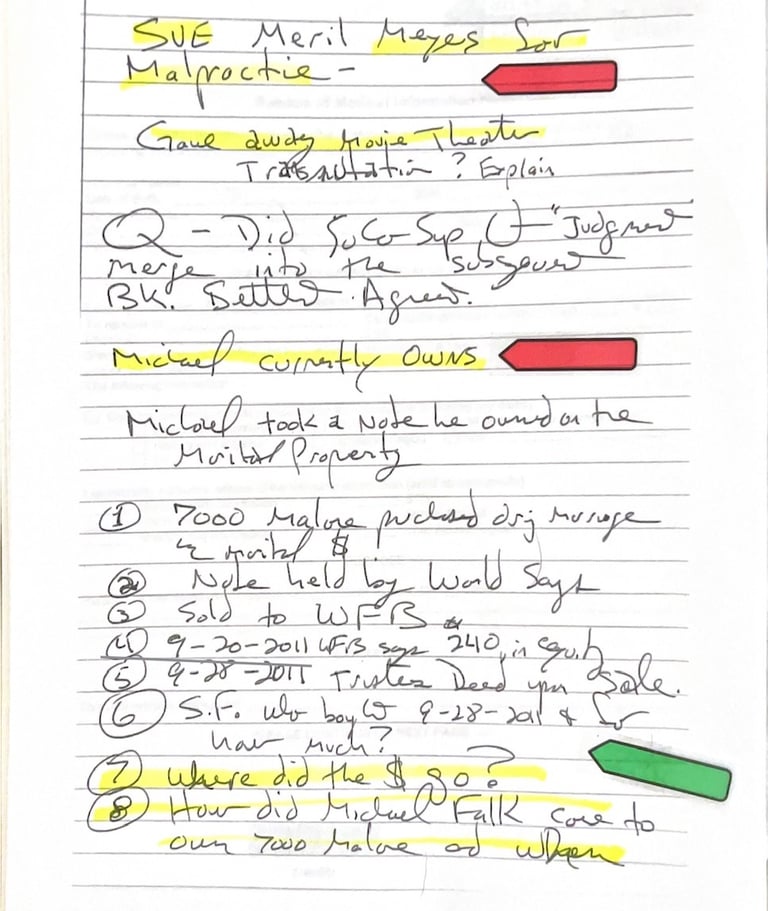 SUE Meril Meyes for
Malproctie -
Gave away Movie Theater
? Explain
Q - Did SoCo Sup Ct "Judgment
merge into the subsequent
BK. Settlet. Agreet.
Michael currently OWNS
Michael took a Note he owned on the
Marital Property
① 7000 Malone purchased drg marriage
w marital $
② Note held by World Savgs
③ Sold to WFB
④ 9-20-2011 WFB says 240, in equity
⑤ 9-28-2011 Trustee Deed upon Sale.
⑥ S.F. who bought 9-28-2011 & for
how much?
⑦ Where did the $ go?
⑧ How did Michael Falk come to
own 7000 Malone and when